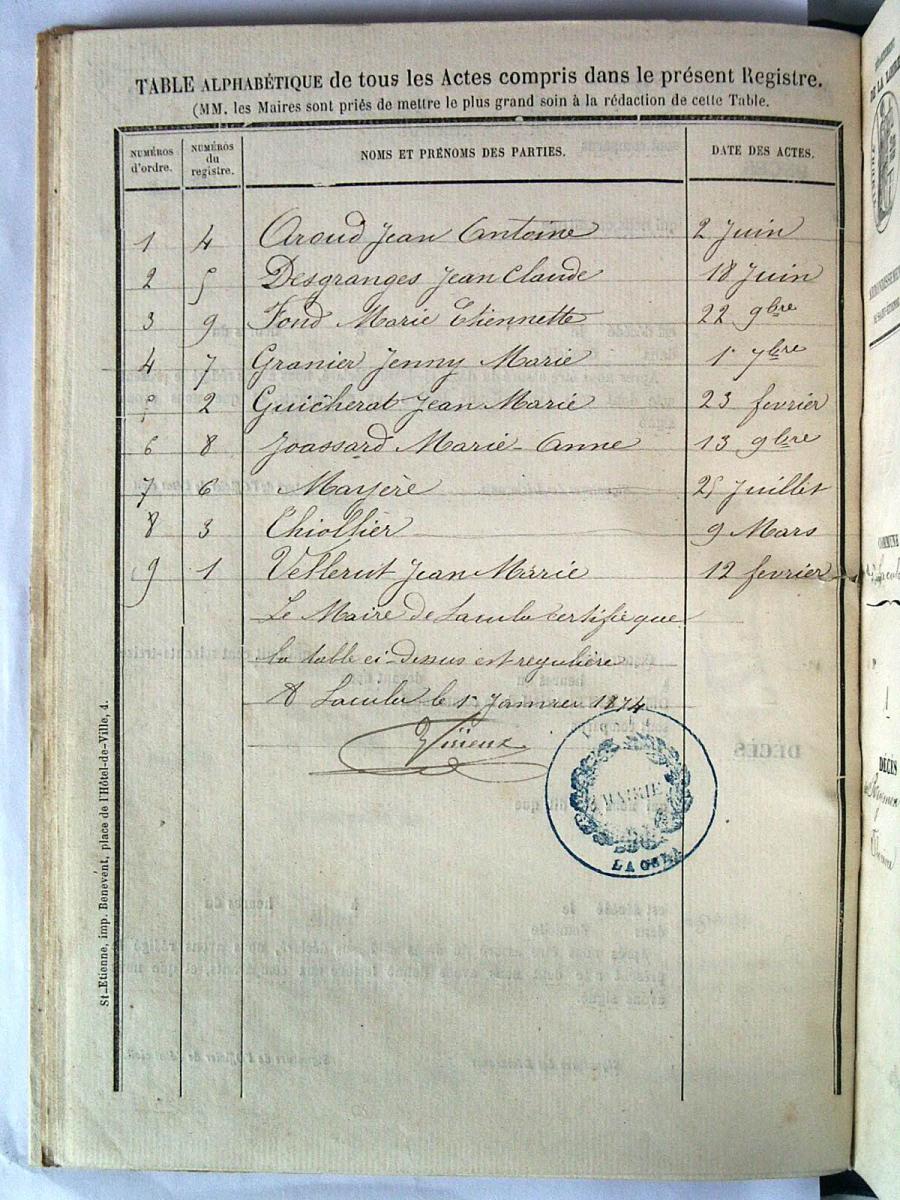 TABLE ALPHABÉTIQUE de tous les Actes compris dans le présent Registre.
(MM. les Maires sont priés de mettre le plus grand soin à la rédaction de cette Table.
NUMÉROS d'ordre. NUMÉROS du registre. NOMS ET PRÉNOMS DES PARTIES. DATE DES ACTES.
1 4 Aroud Jean Antoine 2 Juin
2 5 Desgranges Jean Claude 18 Juin
3 9 Fond Marie Etiennette 22 9bre
4 7 Granier Jenny Marie 1r 7bre
5 2 Guicherat Jean Marie 23 fevrier
6 8 Joassard Marie-Anne 13 9bre
7 6 Mayère 25 Juillet
8 3 Thiollier 9 Mars
9 1 Vellerut Jean Marie 12 fevrier
Le Maire de Lacula certifie que
la table ci-dessus est regulière
A Lacula le 1r Janvier 1874
MAIRIE
LA CULA
St-Etienne, imp. Benevent, place de l'Hôtel-de-Ville, 4.
DE LA LOIRE
TIMBRE
COMMUNE
DÉCÈS